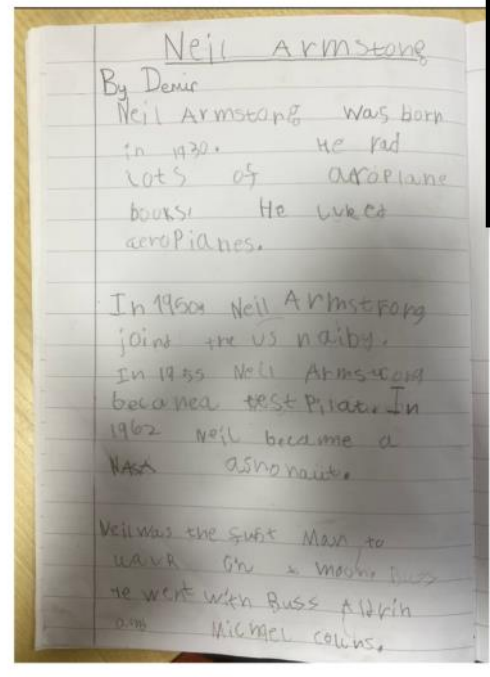 Neil Armstong
By Demir
Neil Armstong was born
in 1930. He rad
lots of aeroplane
books. He liked
aeroplanes.
In 1950s Neil Armstrong
joind the US naiby.
In 1955 Neil Armstrong
becamea test pilat. In
1962 Neil became a
NASA asnonaut.
Neil was the fust Man to
walk on moon.
He went with Buss Aldrin
and Michael collins.